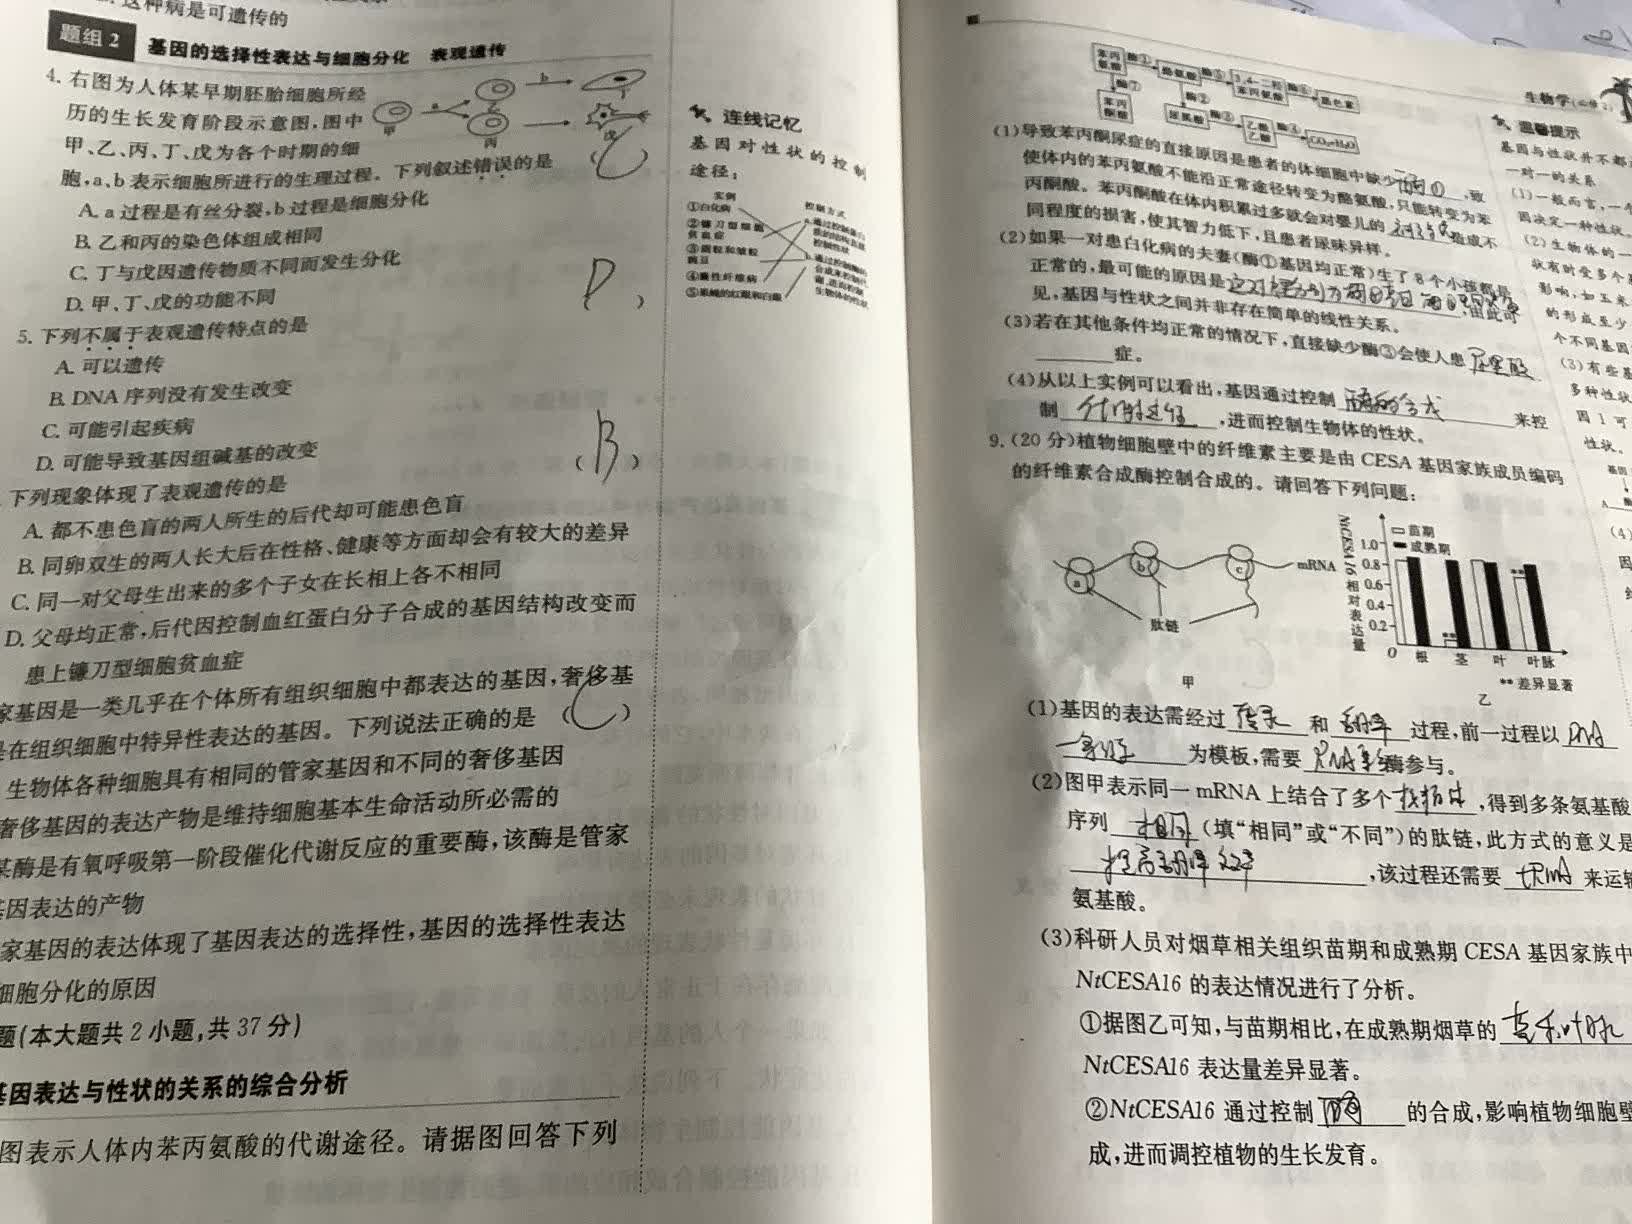 这种病是可遗传的
题组2 基因的选择性表达与细胞分化 表观遗传
4. 右图为人体某早期胚胎细胞所经
历的生长发育阶段示意图,图中
甲、乙、丙、丁、戊为各个时期的细
胞,a、b表示细胞所进行的生理过程。下列叙述错误的是
(C)
a
b
甲
乙
丙
丁
戊
A. a过程是有丝分裂,b过程是细胞分化
B. 乙和丙的染色体组成相同
C. 丁与戊因遗传物质不同而发生分化
D. 甲、丁、戊的功能不同
5. 下列不属于表观遗传特点的是
D
A. 可以遗传
B. DNA序列没有发生改变
C. 可能引起疾病
D. 可能导致基因组碱基的改变
下列现象体现了表观遗传的是
(B)
A. 都不患色盲的两人所生的后代却可能患色盲
B. 同卵双生的两人长大后在性格、健康等方面却会有较大的差异
C. 同一对父母生出来的多个子女在长相上各不相同
D. 父母均正常,后代因控制血红蛋白分子合成的基因结构改变而
患上镰刀型细胞贫血症
家基因是一类几乎在个体所有组织细胞中都表达的基因,奢侈基
是在组织细胞中特异性表达的基因。下列说法正确的是 (C)
生物体各种细胞具有相同的管家基因和不同的奢侈基因
奢侈基因的表达产物是维持细胞基本生命活动所必需的
某酶是有氧呼吸第一阶段催化代谢反应的重要酶,该酶是管家
基因表达的产物
家基因的表达体现了基因表达的选择性,基因的选择性表达
细胞分化的原因
题(本大题共2小题,共37分)
基因表达与性状的关系的综合分析
图表示人体内苯丙氨酸的代谢途径。请据图回答下列
连线记忆
基因对性状的控制
途径:
实例
①白化病
②镰刀型细胞
贫血症
③圆粒和皱粒
豌豆
④囊性纤维病
⑤果蝇的红眼和白眼
控制方式
生物学(必修2)
苯丙
氨酸
酶①
酪氨酸
酶⑤
3,4-二羟
苯丙氨酸
酶⑥
黑色素
酶⑦
苯丙
酮酸
酶②
尿黑酸
酶③
乙酰
乙酸
酶④
CO₂+H₂O
(1)导致苯丙酮尿症的直接原因是患者的体细胞中缺少酶①,致
使体内的苯丙氨酸不能沿正常途径转变为酪氨酸,只能转变为苯
丙酮酸。苯丙酮酸在体内积累过多就会对婴儿的 造成不
同程度的损害,使其智力低下,且患者尿味异样。
(2)如果一对患白化病的夫妻(酶①基因均正常)生了8个小孩都是
正常的,最可能的原因是 ,由此可
见,基因与性状之间并非存在简单的线性关系。
(3)若在其他条件均正常的情况下,直接缺少酶③会使人患 尿黑酸
症。
(4)从以上实例可以看出,基因通过控制 酶的合成 来控
制 代谢过程 ,进而控制生物体的性状。
9. (20分)植物细胞壁中的纤维素主要是由CESA基因家族成员编码
的纤维素合成酶控制合成的。请回答下列问题:
a
b
c
mRNA
肽链
甲
NtCESA16相对表达量
苗期
成熟期
1.0
0.8
0.6
0.4
0.2
O
**
**
根 茎 叶 叶脉
**差异显著
乙
(1)基因的表达需经过 转录 和 翻译 过程,前一过程以 DNA
一条链 为模板,需要 RNA聚合酶参与。
(2)图甲表示同一mRNA上结合了多个核糖体,得到多条氨基酸
序列 相同 (填“相同”或“不同”)的肽链,此方式的意义是
提高翻译效率 ,该过程还需要 tRNA 来运输
氨基酸。
(3)科研人员对烟草相关组织苗期和成熟期CESA基因家族中
NtCESA16的表达情况进行了分析。
①据图乙可知,与苗期相比,在成熟期烟草的 茎和叶脉
NtCESA16表达量差异显著。
②NtCESA16通过控制 酶 的合成,影响植物细胞壁
成,进而调控植物的生长发育。
温馨提示
基因与性状并不都
一对一的关系
(1)一般而言,一个
因决定一种性状。
(2)生物体的一
状有时受多个
影响,如玉米
的形成至少
个不同基因
(3)有些基
多种性状
因1可
性状。
基因
(4)